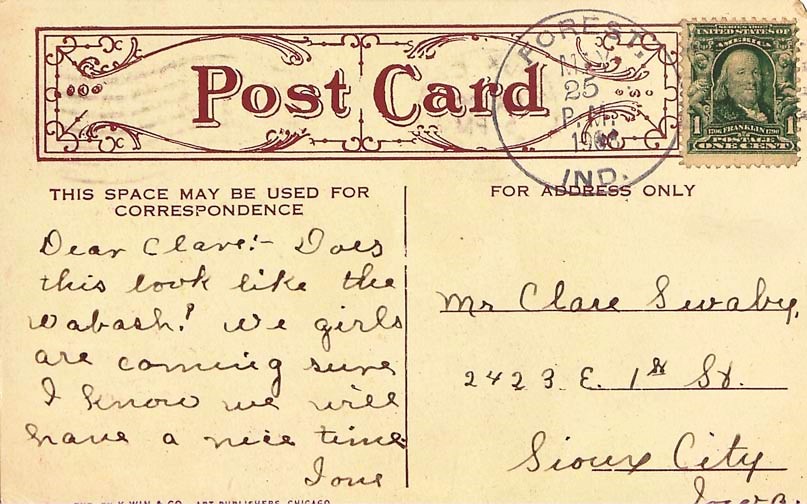 Post Card
FOREST.
25
P.M.
IND.
SERIES 1902
UNITED STATES OF
AMERICA
1 1706 FRANKLIN 1790 1
POSTAGE
ONE CENT
THIS SPACE MAY BE USED FOR
CORRESPONDENCE
FOR ADDRESS ONLY
Dear Clare:- Does
this look like the
Wabash? We girls
are coming sure
I know we will
have a nice time
Ione
Mr Clare Swaby,
2423 E. 1st St.
Sioux City
Iowa.
WIN & CO., ART PUBLISHERS, CHICAGO